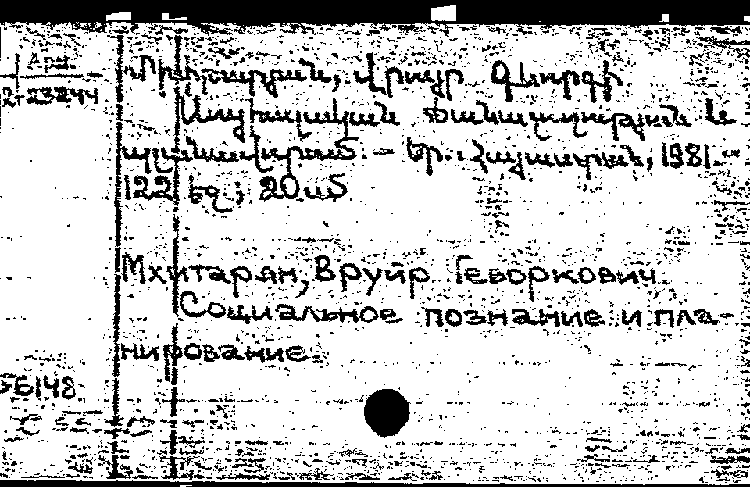 Арм.
2-23244
Մխիթարյան, Վրույր Գևորգի
Սոցիալական ճանաչողություն և
պլանավորում. – Եր.: Հայաստան, 1981. –
122 էջ; 20 սմ
Мхитарян, Вруйр Геворкович
Социальное познание и пла-
нирование.
6148